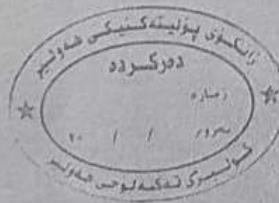 زانکۆی پۆلیتەکنیکی هەولێر
دەرکردە
ژمارە
بەروار / / ٢٠
کۆلیژی تەکنەلوجی هەولێر